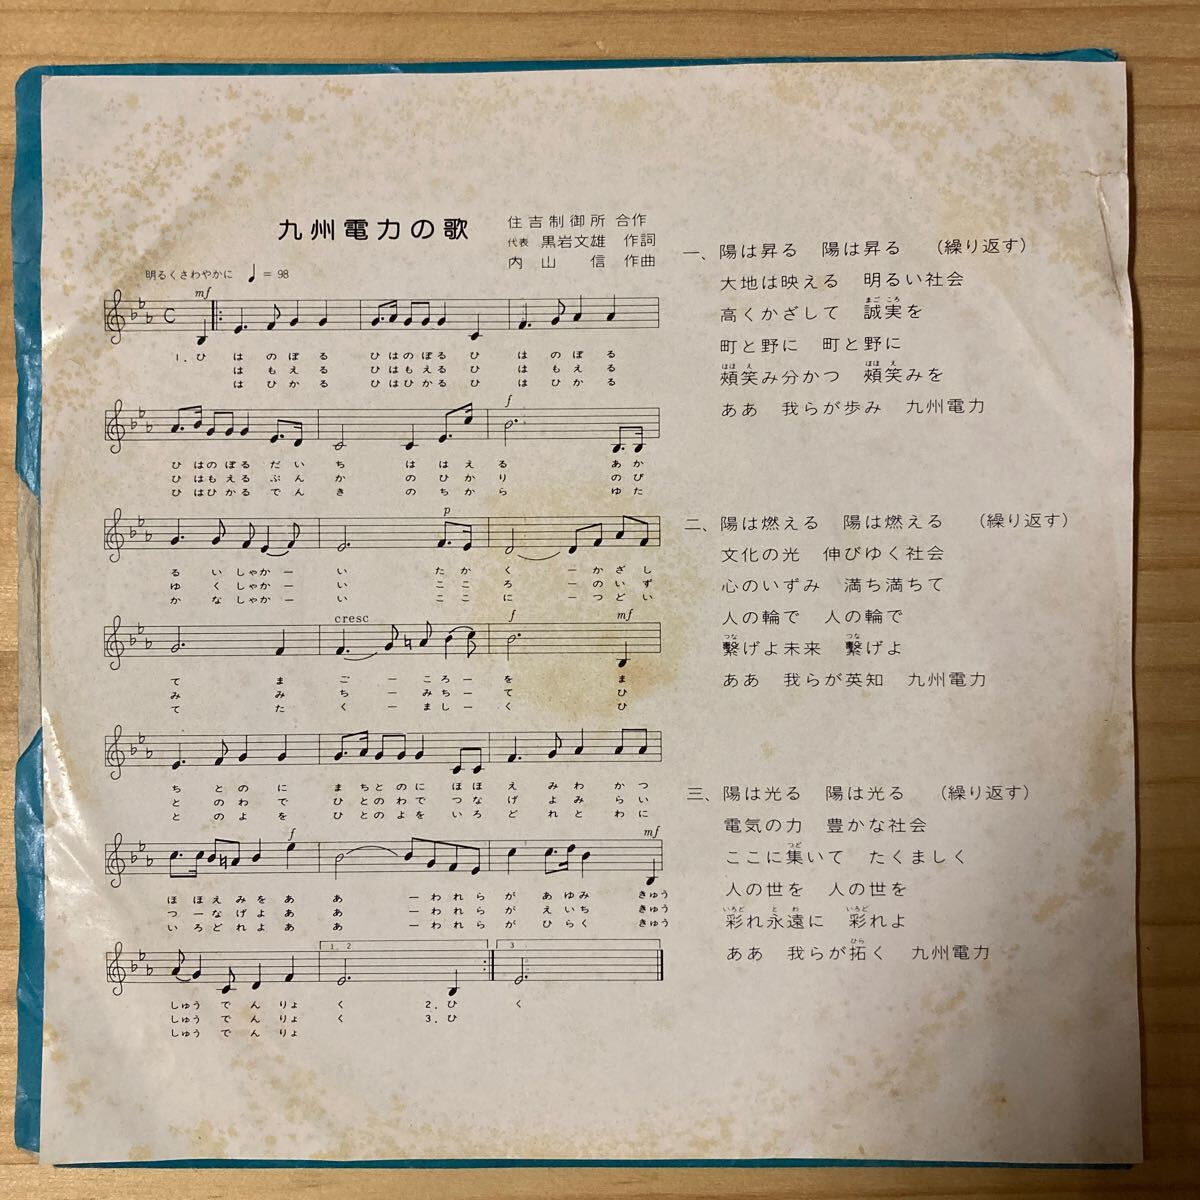 九州電力の歌
住吉制御所 合作
代表 黒岩文雄 作詞
内山 信 作曲
明るくさわやかに ♩ = 98
mf
1. ひ は の ぼ る ひ は の ぼ る ひ は の ぼ る
は も え る ひ は も え る ひ は も え る
は ひ か る ひ は ひ か る ひ は ひ か る
f
ひ は の ぼ る だ い ち は は え る あ か
ひ は も え る ぶ ん か の ひ か り の び
ひ は ひ か る で ん き の ち か ら ゆ た
p
る い しゃ か ー い た か く ー か ざ し
ゆ く しゃ か ー い こ こ ろ ー の い ず
か な しゃ か ー い こ こ に ー つ ど い
cresc f mf
て ま ご ー こ ろ ー を ま
み み ち ー み ち ー て ひ
て た く ー ま し ー く ひ
ち と の に ま ち と の に ほ ほ え み わ か つ
と の わ で ひ と の わ で つ な げ よ み ら い
と の よ を ひ と の よ を い ろ ど れ と わ に
f mf
ほ ほ え み を あ あ ー わ れ ら が あ ゆ み きゅう
つ ー な げ よ あ あ ー わ れ ら が え い ち きゅう
い ろ ど れ よ あ あ ー わ れ ら が ひ ら く きゅう
1. 2 3
しゅう で ん りょ く 2. ひ く
しゅう で ん りょ く 3. ひ
しゅう で ん りょ
一、陽は昇る 陽は昇る （繰り返す）
大地は映える 明るい社会
まご ころ
高くかざして 誠実を
町と野に 町と野に
ほほ え ほほ え
頰笑み分かつ 頰笑みを
ああ 我らが歩み 九州電力
二、陽は燃える 陽は燃える （繰り返す）
文化の光 伸びゆく社会
心のいずみ 満ち満ちて
人の輪で 人の輪で
つな つな
繫げよ未来 繫げよ
ああ 我らが英知 九州電力
三、陽は光る 陽は光る （繰り返す）
電気の力 豊かな社会
つど
ここに集いて たくましく
人の世を 人の世を
いろど と わ いろど
彩れ永遠に 彩れよ
ひら
ああ 我らが拓く 九州電力